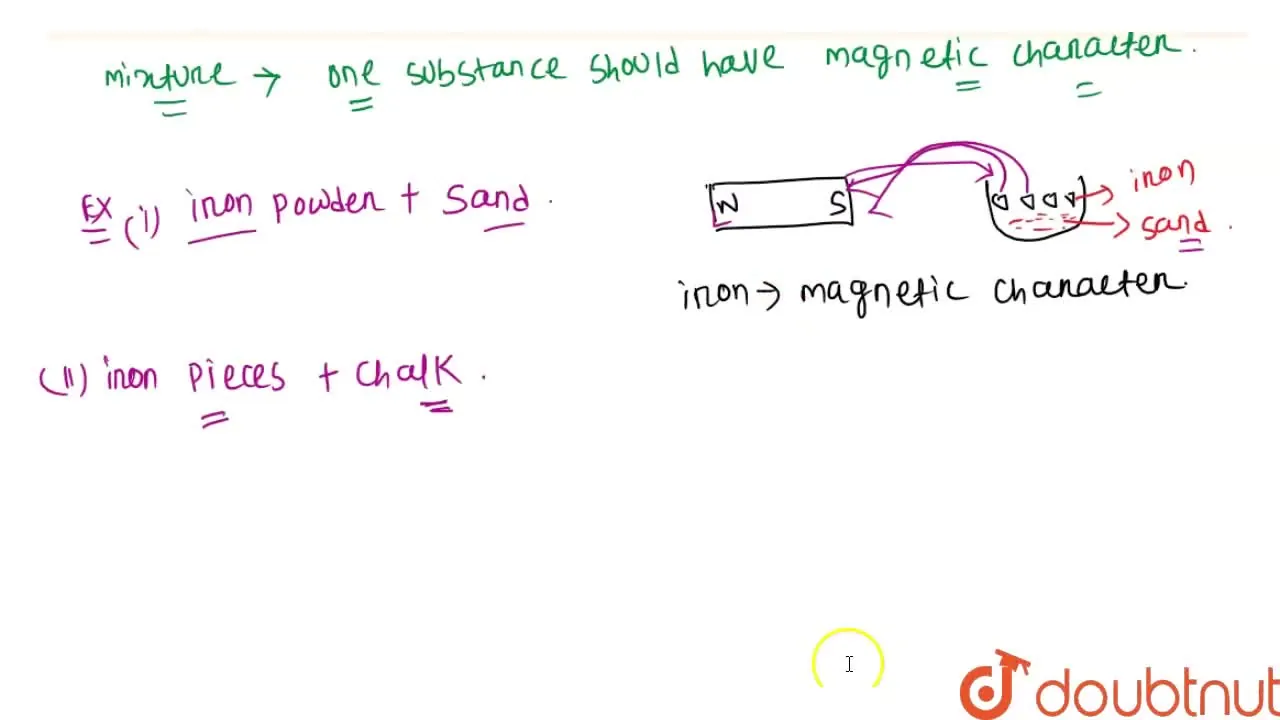 mixture → one substance should have magnetic character.
Ex (i) iron powder + sand.
N S
iron
sand.
iron → magnetic character.
(II) iron pieces + chalk.
doubtnut